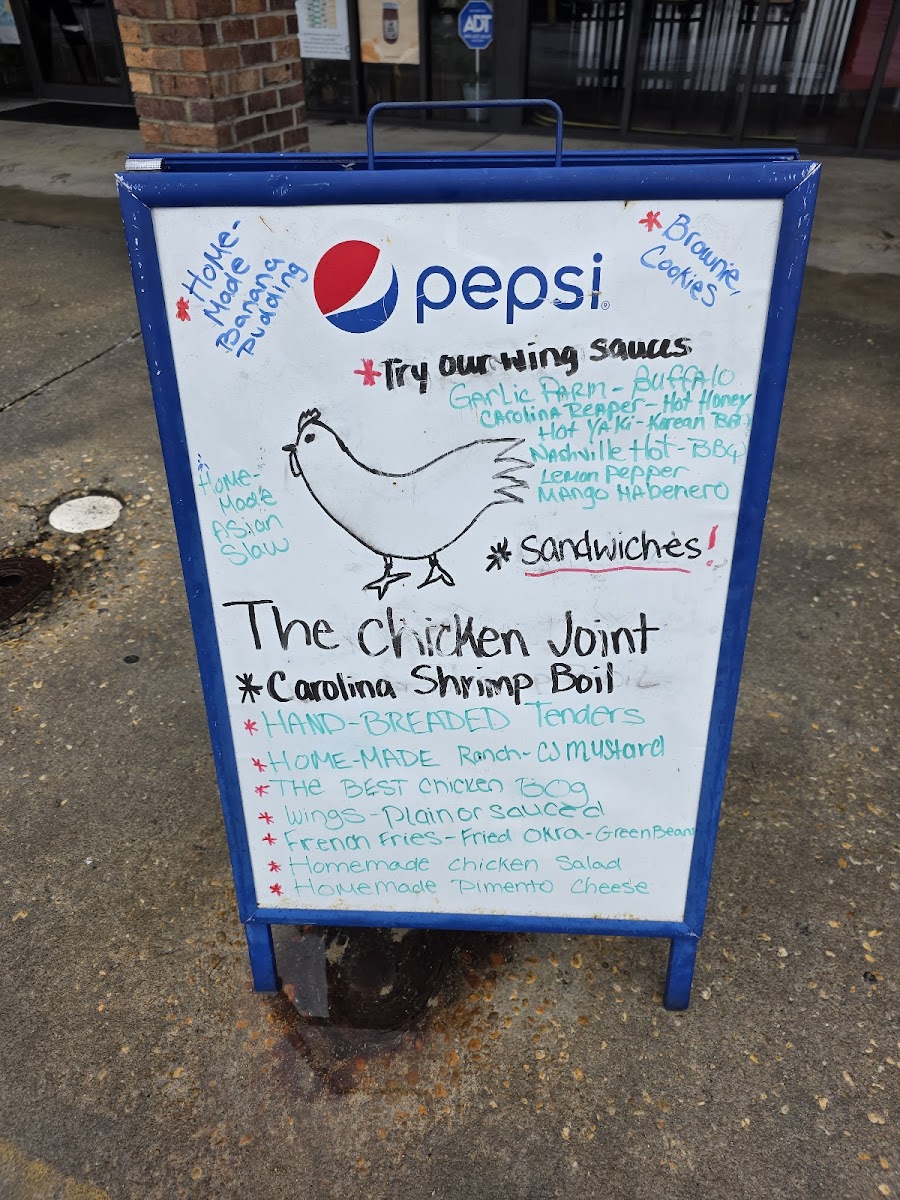 ADT
* Home-
Made
Banana
Pudding
pepsi
* Brownie,
Cookies
*Try our wing sauces
Garlic Parm - Buffalo
Carolina Reaper - Hot Honey
Hot Yaki - Korean BBQ
Nashville Hot - BBQ
Lemon Pepper
Mango Habenero
Home-
Made
Asian
Slaw
* Sandwiches!
The Chicken Joint
* Carolina Shrimp Boil
* HAND-BREADED Tenders
* HOME-MADE Ranch - CJ Mustard
* THE BEST Chicken BOg
* Wings - Plain or sauced
* French Fries - Fried Okra - Green Beans
* Homemade Chicken Salad
* Homemade Pimento Cheese